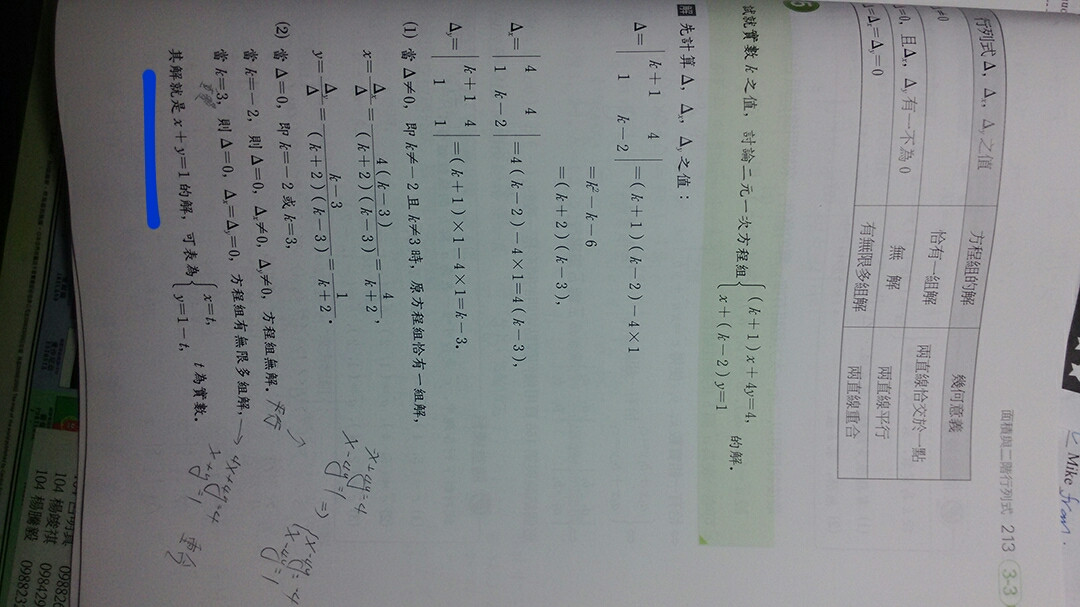 Mike from.
面積與二階行列式 213 3-3
行列式 Δ, Δx, Δy 之值 方程組的解 幾何意義
≠0 恰有一組解 兩直線恰交於一點
=0, 且 Δx, Δy 有一不為 0 無 解 兩直線平行
=Δx=Δy=0 有無限多組解 兩直線重合
試就實數 k 之值, 討論二元一次方程組 { (k+1)x+4y=4, x+(k-2)y=1 的解.
解 先計算 Δ, Δx, Δy 之值:
Δ=| k+1 4 ; 1 k-2 |=(k+1)(k-2)-4×1
=k²-k-6
=(k+2)(k-3),
Δx=| 4 4 ; 1 k-2 |=4(k-2)-4×1=4(k-3),
Δy=| k+1 4 ; 1 1 |=(k+1)×1-4×1=k-3.
(1) 當 Δ≠0, 即 k≠-2 且 k≠3 時, 原方程組恰有一組解,
x=Δx/Δ=4(k-3)/(k+2)(k-3)=4/k+2,
y=Δy/Δ=k-3/(k+2)(k-3)=1/k+2.
(2) 當 Δ=0, 即 k=-2 或 k=3,
當 k=-2, 則 Δ=0, Δx≠0, Δy≠0, 方程組無解.
當 k=3, 則 Δ=0, Δx=Δy=0, 方程組有無限多組解,
其解就是 x+y=1 的解, 可表為 { x=t, y=1-t, t 為實數.
x-4y=1 ⇒
→ 4x+4y=4
x+y=1
104 楊騰毅
104 楊畯祺